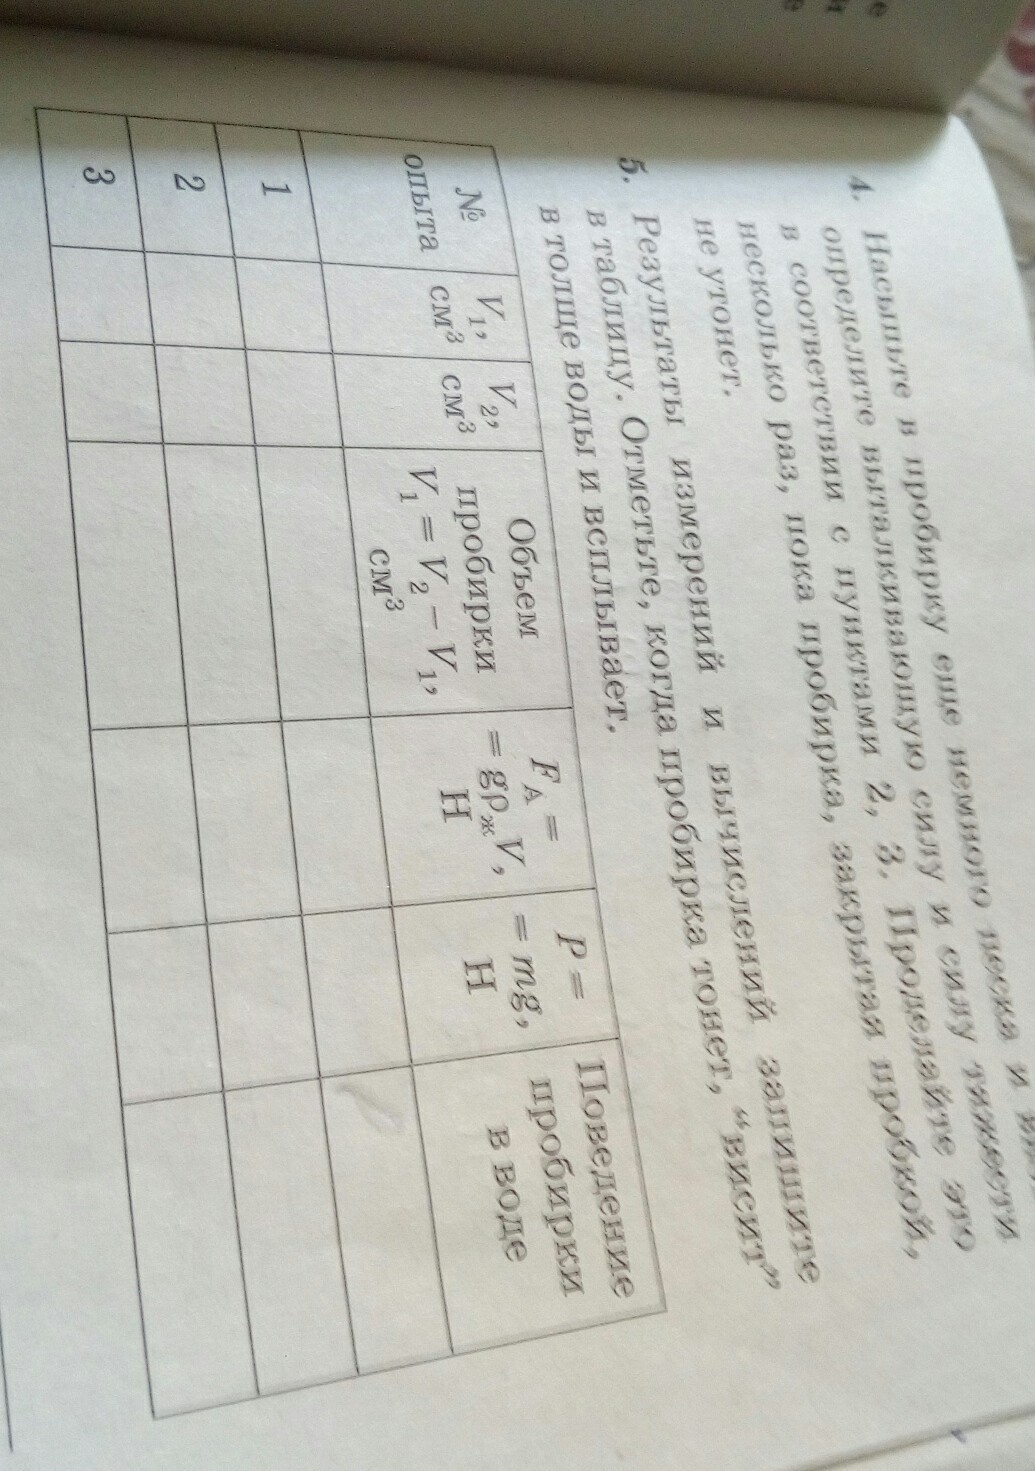 4. Насыпьте в пробирку еще немного песка и
определите выталкивающую силу и силу тяжести
в соответствии с пунктами 2, 3. Проделайте это
несколько раз, пока пробирка, закрытая пробкой,
не утонет.
5. Результаты измерений и вычислений запишите
в таблицу. Отметьте, когда пробирка тонет, “висит”
в толще воды и всплывает.
№
опыта
V₁,
см³
V₂,
см³
Объем
пробирки
V₁ = V₂ − V₁,
см³
F_A =
= gρ_ж V,
Н
P =
= mg,
Н
Поведение
пробирки
в воде
1
2
3